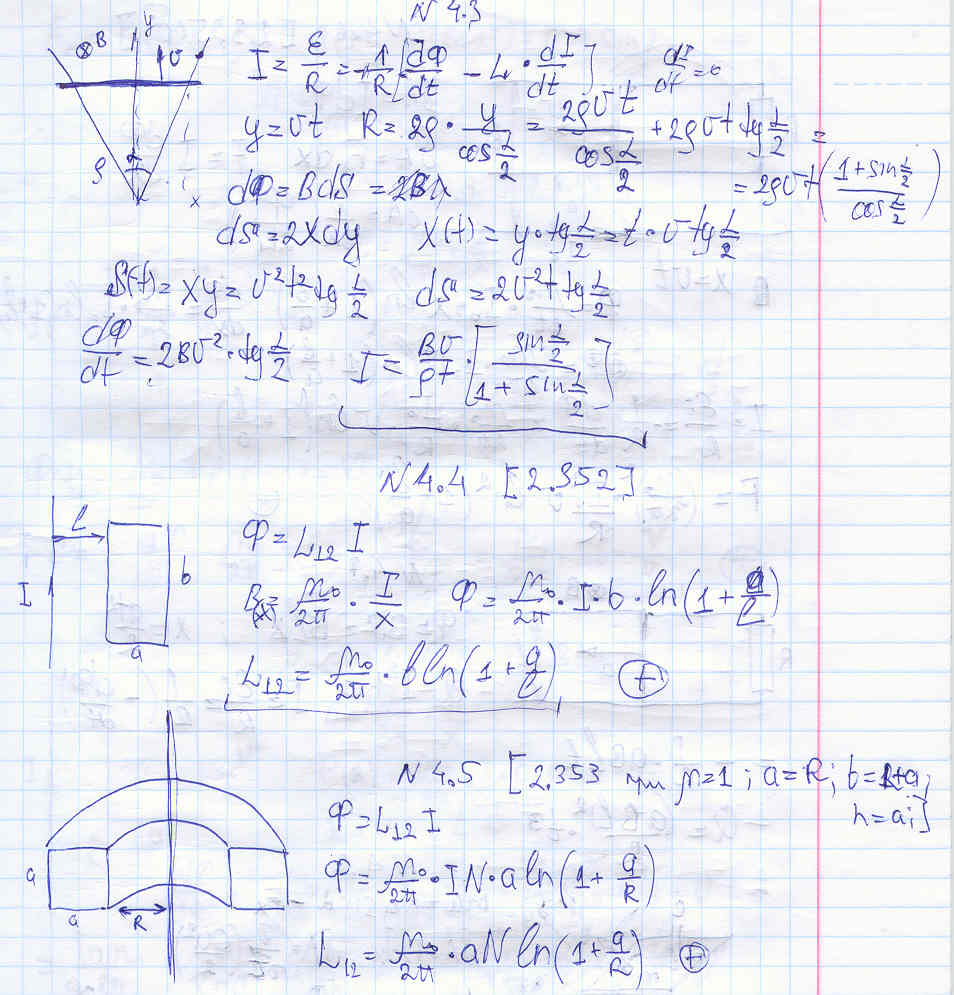 N 4.3
⊗B y υ
I = ε/R = -1/R [dΦ/dt - L · dI/dt] dI/dt = 0
y = υt R = 2ρ · y/cos α/2 = 2ρυt/cos α/2 + 2ρυt tg α/2 =
= 2ρυt (1 + sin α/2 / cos α/2)
ρ α x dΦ = BdS
dS = 2xdy x(t) = y · tg α/2 = t · υ tg α/2
S(t) = xy = υ²t² tg α/2 dS = 2υ²t tg α/2
dΦ/dt = 2Bυ² · tg α/2 I = Bυ/ρt · [sin α/2 / 1 + sin α/2]
N 4.4 [2.352]
l I b a
Φ = L₁₂ I
B(x) = μ₀/2π · I/x Φ = μ₀/2π · I · b · ln(1 + a/l)
L₁₂ = μ₀/2π · b ln(1 + a/l) (+)
N 4.5 [2.353 при μ=1; a=R; b=R+a;
h=a;]
Φ = L₁₂ I
a a R
Φ = μ₀/2π · IN · a ln(1 + a/R)
L₁₂ = μ₀/2π · aN ln(1 + a/R) (+)